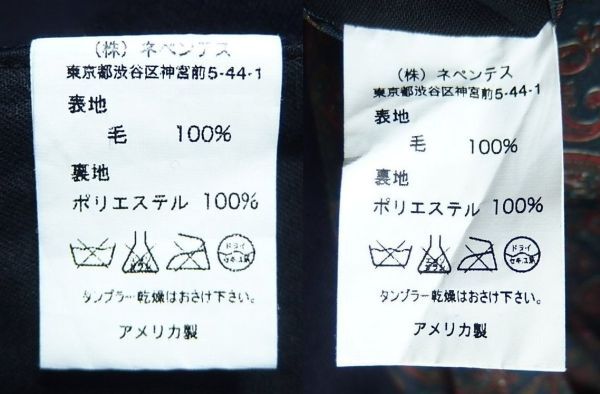 （株）ネペンテス
東京都渋谷区神宮前5-44-1
表地
毛 100%
裏地
ポリエステル 100%
ドライ
セキユ系
タンブラー乾燥はおさけ下さい。
アメリカ製
（株）ネペンテス
東京都渋谷区神宮前5-44-1
表地
毛 100%
裏地
ポリエステル 100%
ドライ
セキユ系
タンブラー乾燥はおさけ下さい。
アメリカ製